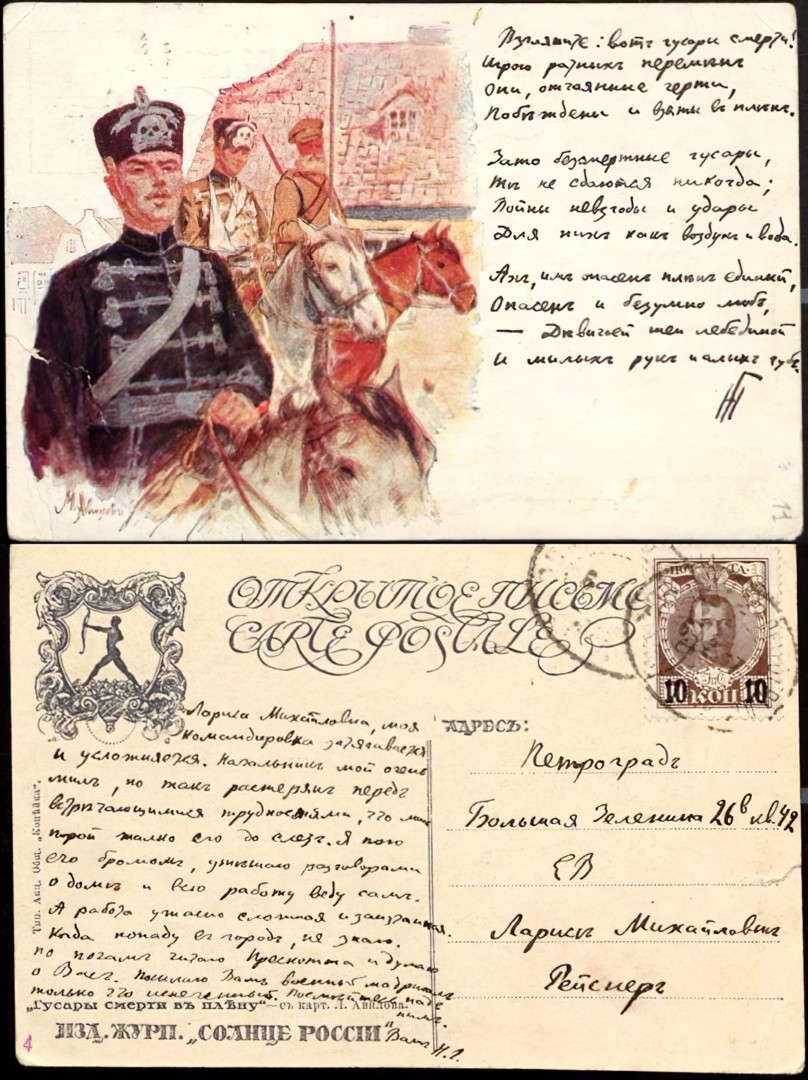 Взгляните: вотъ гусары смерти!
Игрою ратныхъ перемѣнъ
Они, отчаянные черти,
Побѣждены и взяты въ плѣнъ.
Зато безсмертные гусары,
Тѣ не сдаются никогда;
Войны невзгоды и удары
Для нихъ какъ воздухъ и вода.
Ахъ, имъ опасенъ плѣнъ единый,
Опасенъ и безумно любъ,
— Дѣвичьей шеи лебединой
И милыхъ рукъ и алыхъ губъ.
НГ
М. Авиловъ
11
ОТКРЫТОЕ ПИСЬМО
CARTE POSTALE
ПОЧТА
10 КОП 10
Лариса Михайловна, моя
командировка затягивается
и усложняется. Начальникъ мой очень
милъ, но такъ растерянъ передъ
встрѣчающимися трудностями, что мнѣ
порой жалко его до слезъ. Я пою
его бромомъ, утѣшаю разговорами
о домѣ и всю работу веду самъ.
А работа ужасно сложная и запутанная.
Когда попаду въ городъ, не знаю.
По ночамъ читаю Прескотта и думаю
о Васъ. Посылаю Вамъ военный мадригалъ
только что испеченный. Посмѣйтесь надъ
нимъ.
Вашъ Н.Г.
АДРЕСЪ:
Петроградъ
Большая Зеленина 26в кв. 42
ЕВ
Ларисѣ Михайловнѣ
Рейснеръ
Тип. Акц. Общ. „Копѣйка“.
„Гусары смерти въ плѣну“—съ карт. Л. Авилова.
ИЗД. ЖУРН. „СОЛНЦЕ РОССІИ“
4